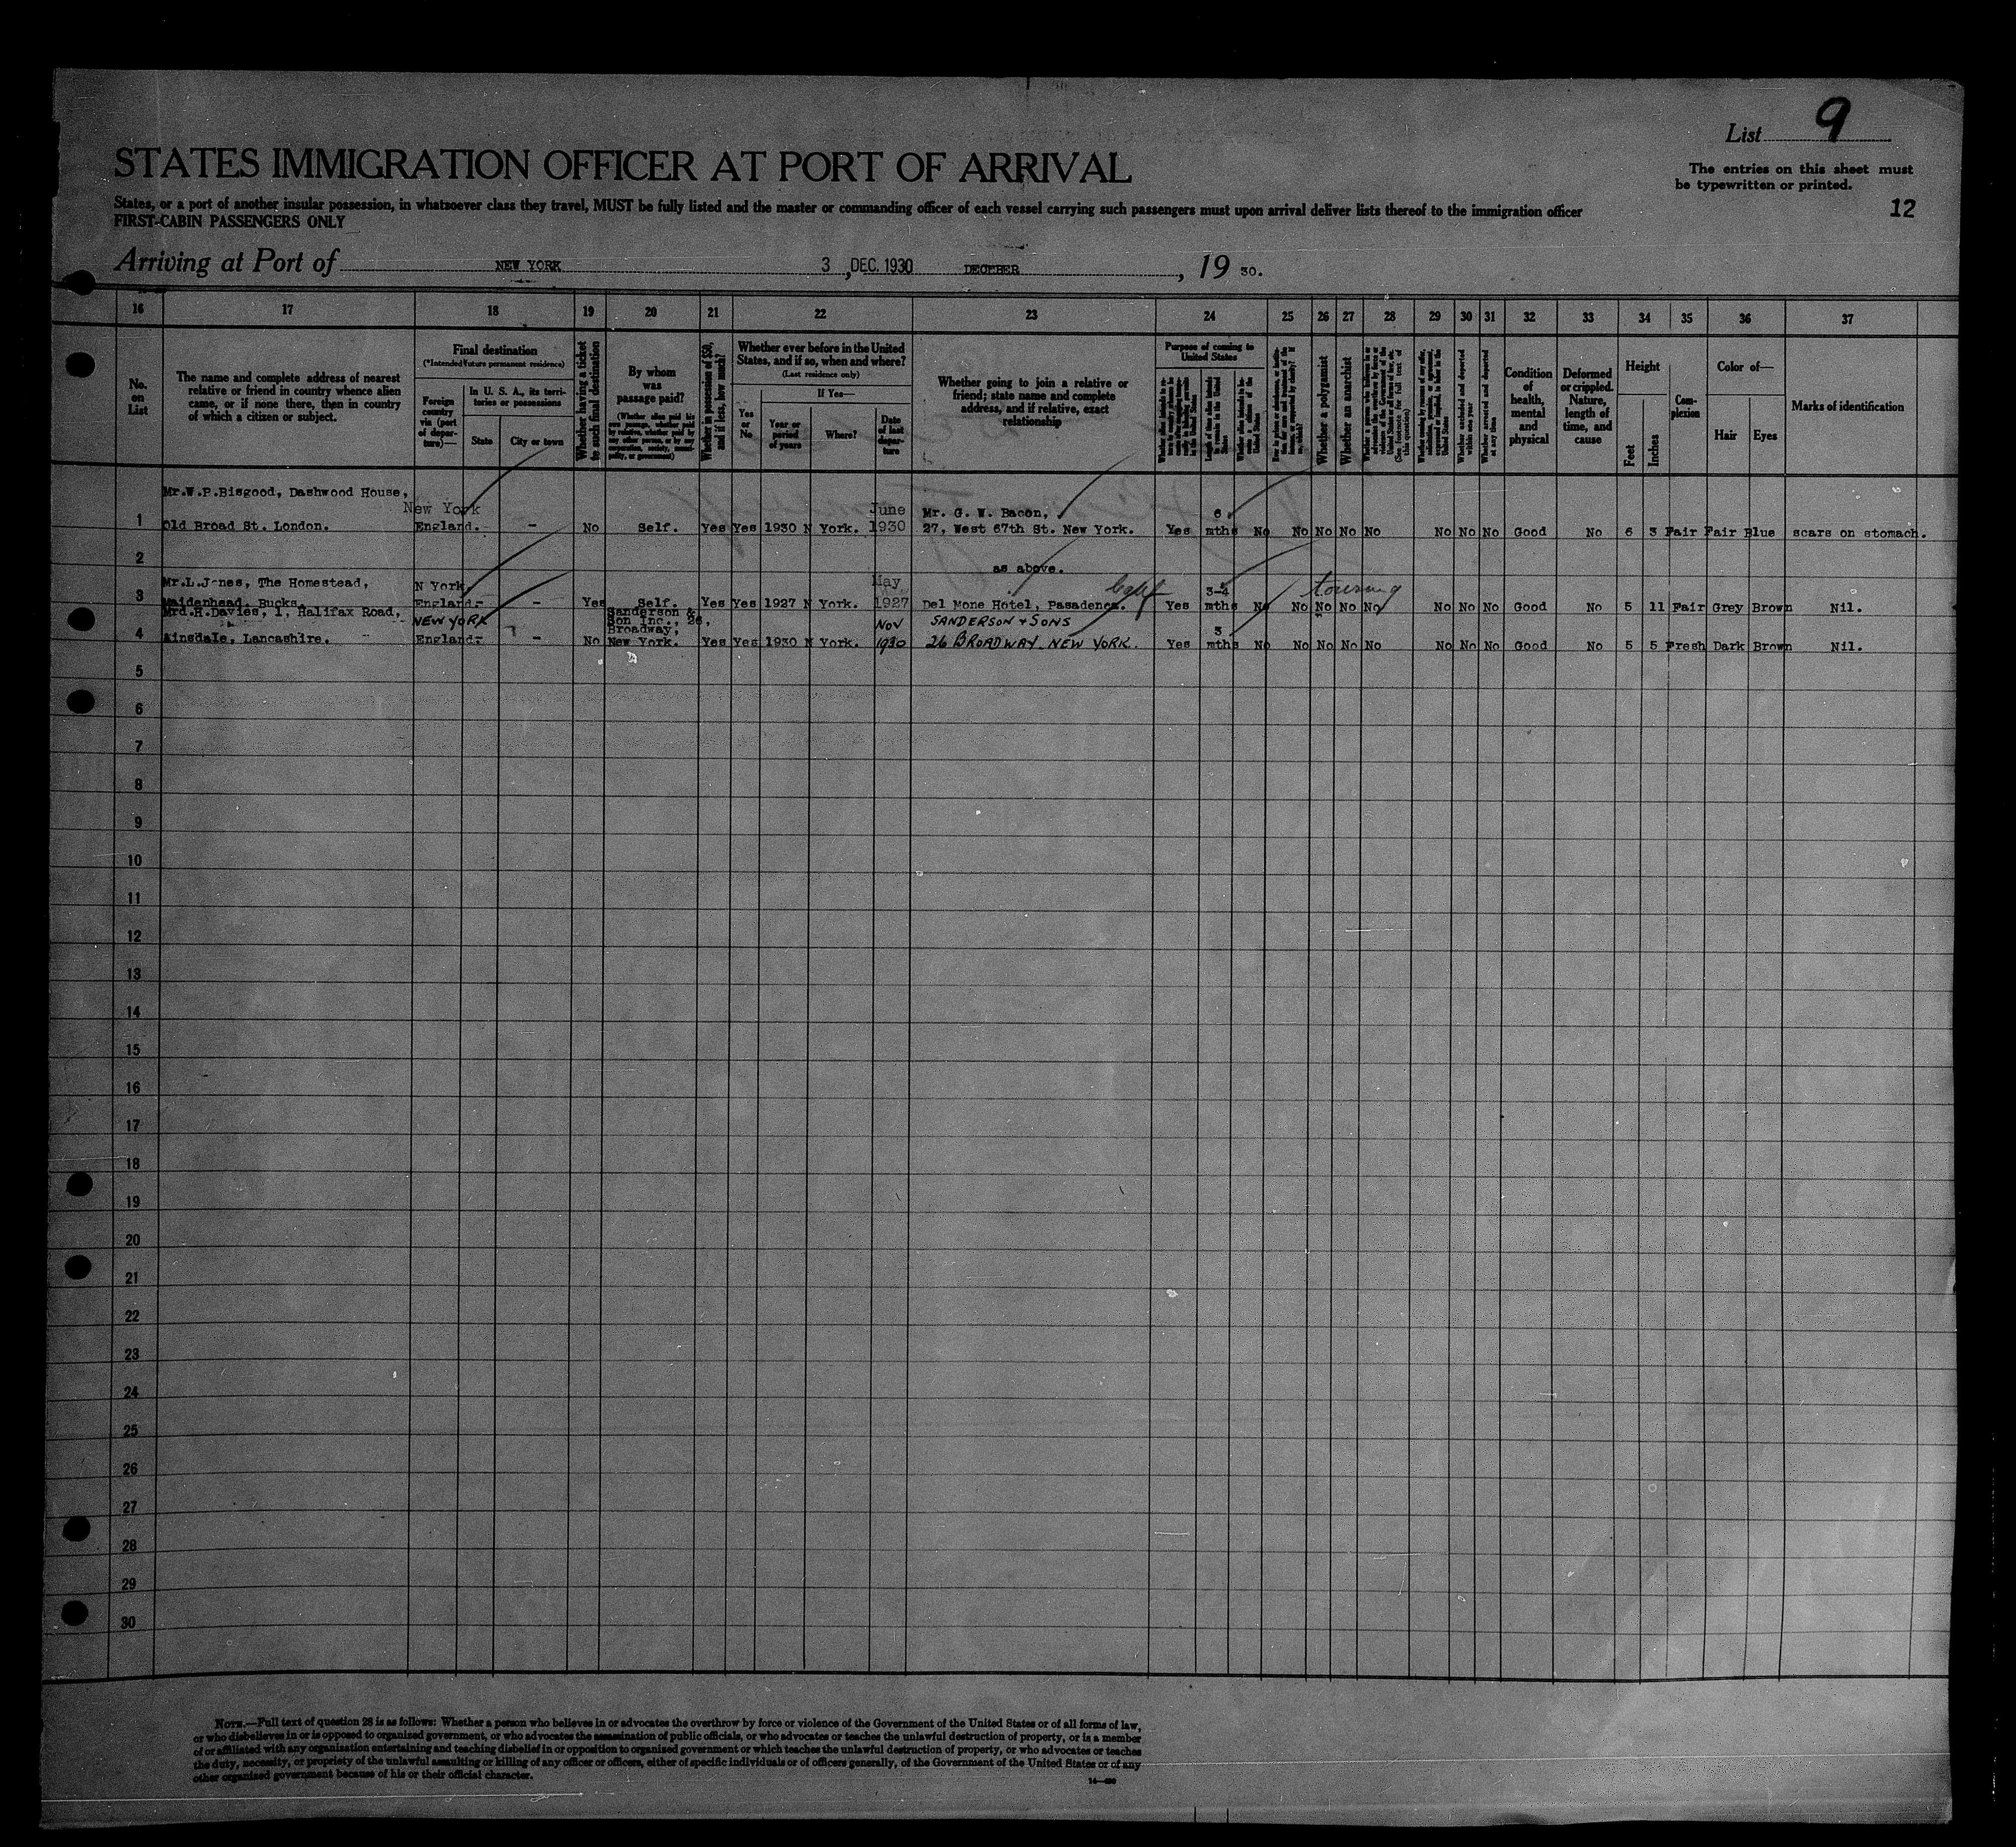 List 9
The entries on this sheet must
be typewritten or printed.
12
STATES IMMIGRATION OFFICER AT PORT OF ARRIVAL
States, or a port of another insular possession, in whatsoever class they travel, MUST be fully listed and the master or commanding officer of each vessel carrying such passengers must upon arrival deliver lists thereof to the immigration officer
FIRST-CABIN PASSENGERS ONLY
Arriving at Port of NEW YORK 3 , DEC. 1930 DECEMBER , 19 30.
16 17 18 19 20 21 22 23 24 25 26 27 28 29 30 31 32 33 34 35 36 37
No. on List
The name and complete address of nearest
relative or friend in country whence alien
came, or if none there, then in country
of which a citizen or subject.
Final destination
(*Intended future permanent residence)
Foreign country via (port of departure)—
In U. S. A., its territories or possessions
State
City or town
Whether having a ticket to such final destination
By whom was passage paid?
(Whether alien paid his own passage, whether paid by relative, whether paid by any other person, or by any corporation, society, municipality, or government)
Whether in possession of $50, and if less, how much?
Whether ever before in the United
States, and if so, when and where?
(Last residence only)
If Yes—
Yes or No
Year or period of years
Where?
Date of last departure
Whether going to join a relative or
friend; state name and complete
address, and if relative, exact
relationship
Purpose of coming to United States
Whether a polygamist
Whether an anarchist
Whether excluded and deported within one year
Whether arrested and deported at any time
Condition of health, mental and physical
Deformed or crippled. Nature, length of time, and cause
Height
Feet
Inches
Complexion
Color of—
Hair
Eyes
Marks of identification
Mr.W.P.Bisgood, Dashwood House, New York June Mr. G. W. Bacon, 6
1 Old Broad St. London. England. - No Self. Yes Yes 1930 N York. 1930 27, West 67th St. New York. Yes mths No No No No No No No No Good No 6 3 Fair Fair Blue scars on stomach.
2 as above.
Mr.L.Jones, The Homestead, N York May Calif 3-4 touring
3 Maidenhead. Bucks. England.- - Yes Self. Yes Yes 1927 N York. 1927 Del Mone Hotel, Pasadena. Yes mths No No No No No No No No Good No 5 11 Fair Grey Brown Nil.
Mrd.H.Davies, 1, Halifax Road, NEW YORK Sanderson & Son Inc., 26, Broadway, NOV SANDERSON & SONS 3
4 Ainsdale, Lancashire. England.- - No New York. Yes Yes 1930 N York. 1930 26 BROADWAY. NEW YORK. Yes mths No No No No No No No No Good No 5 5 Fresh Dark Brown Nil.
5
6
7
8
9
10
11
12
13
14
15
16
17
18
19
20
21
22
23
24
25
26
27
28
29
30
NOTE.—Full text of question 28 is as follows: Whether a person who believes in or advocates the overthrow by force or violence of the Government of the United States or of all forms of law,
or who disbelieves in or is opposed to organized government, or who advocates the assassination of public officials, or who advocates or teaches the unlawful destruction of property, or is a member
of or affiliated with any organization entertaining and teaching disbelief in or opposition to organized government or which teaches the unlawful destruction of property, or who advocates or teaches
the duty, necessity, or propriety of the unlawful assaulting or killing of any officer or officers, either of specific individuals or of officers generally, of the Government of the United States or of any
other organized government because of his or their official character.